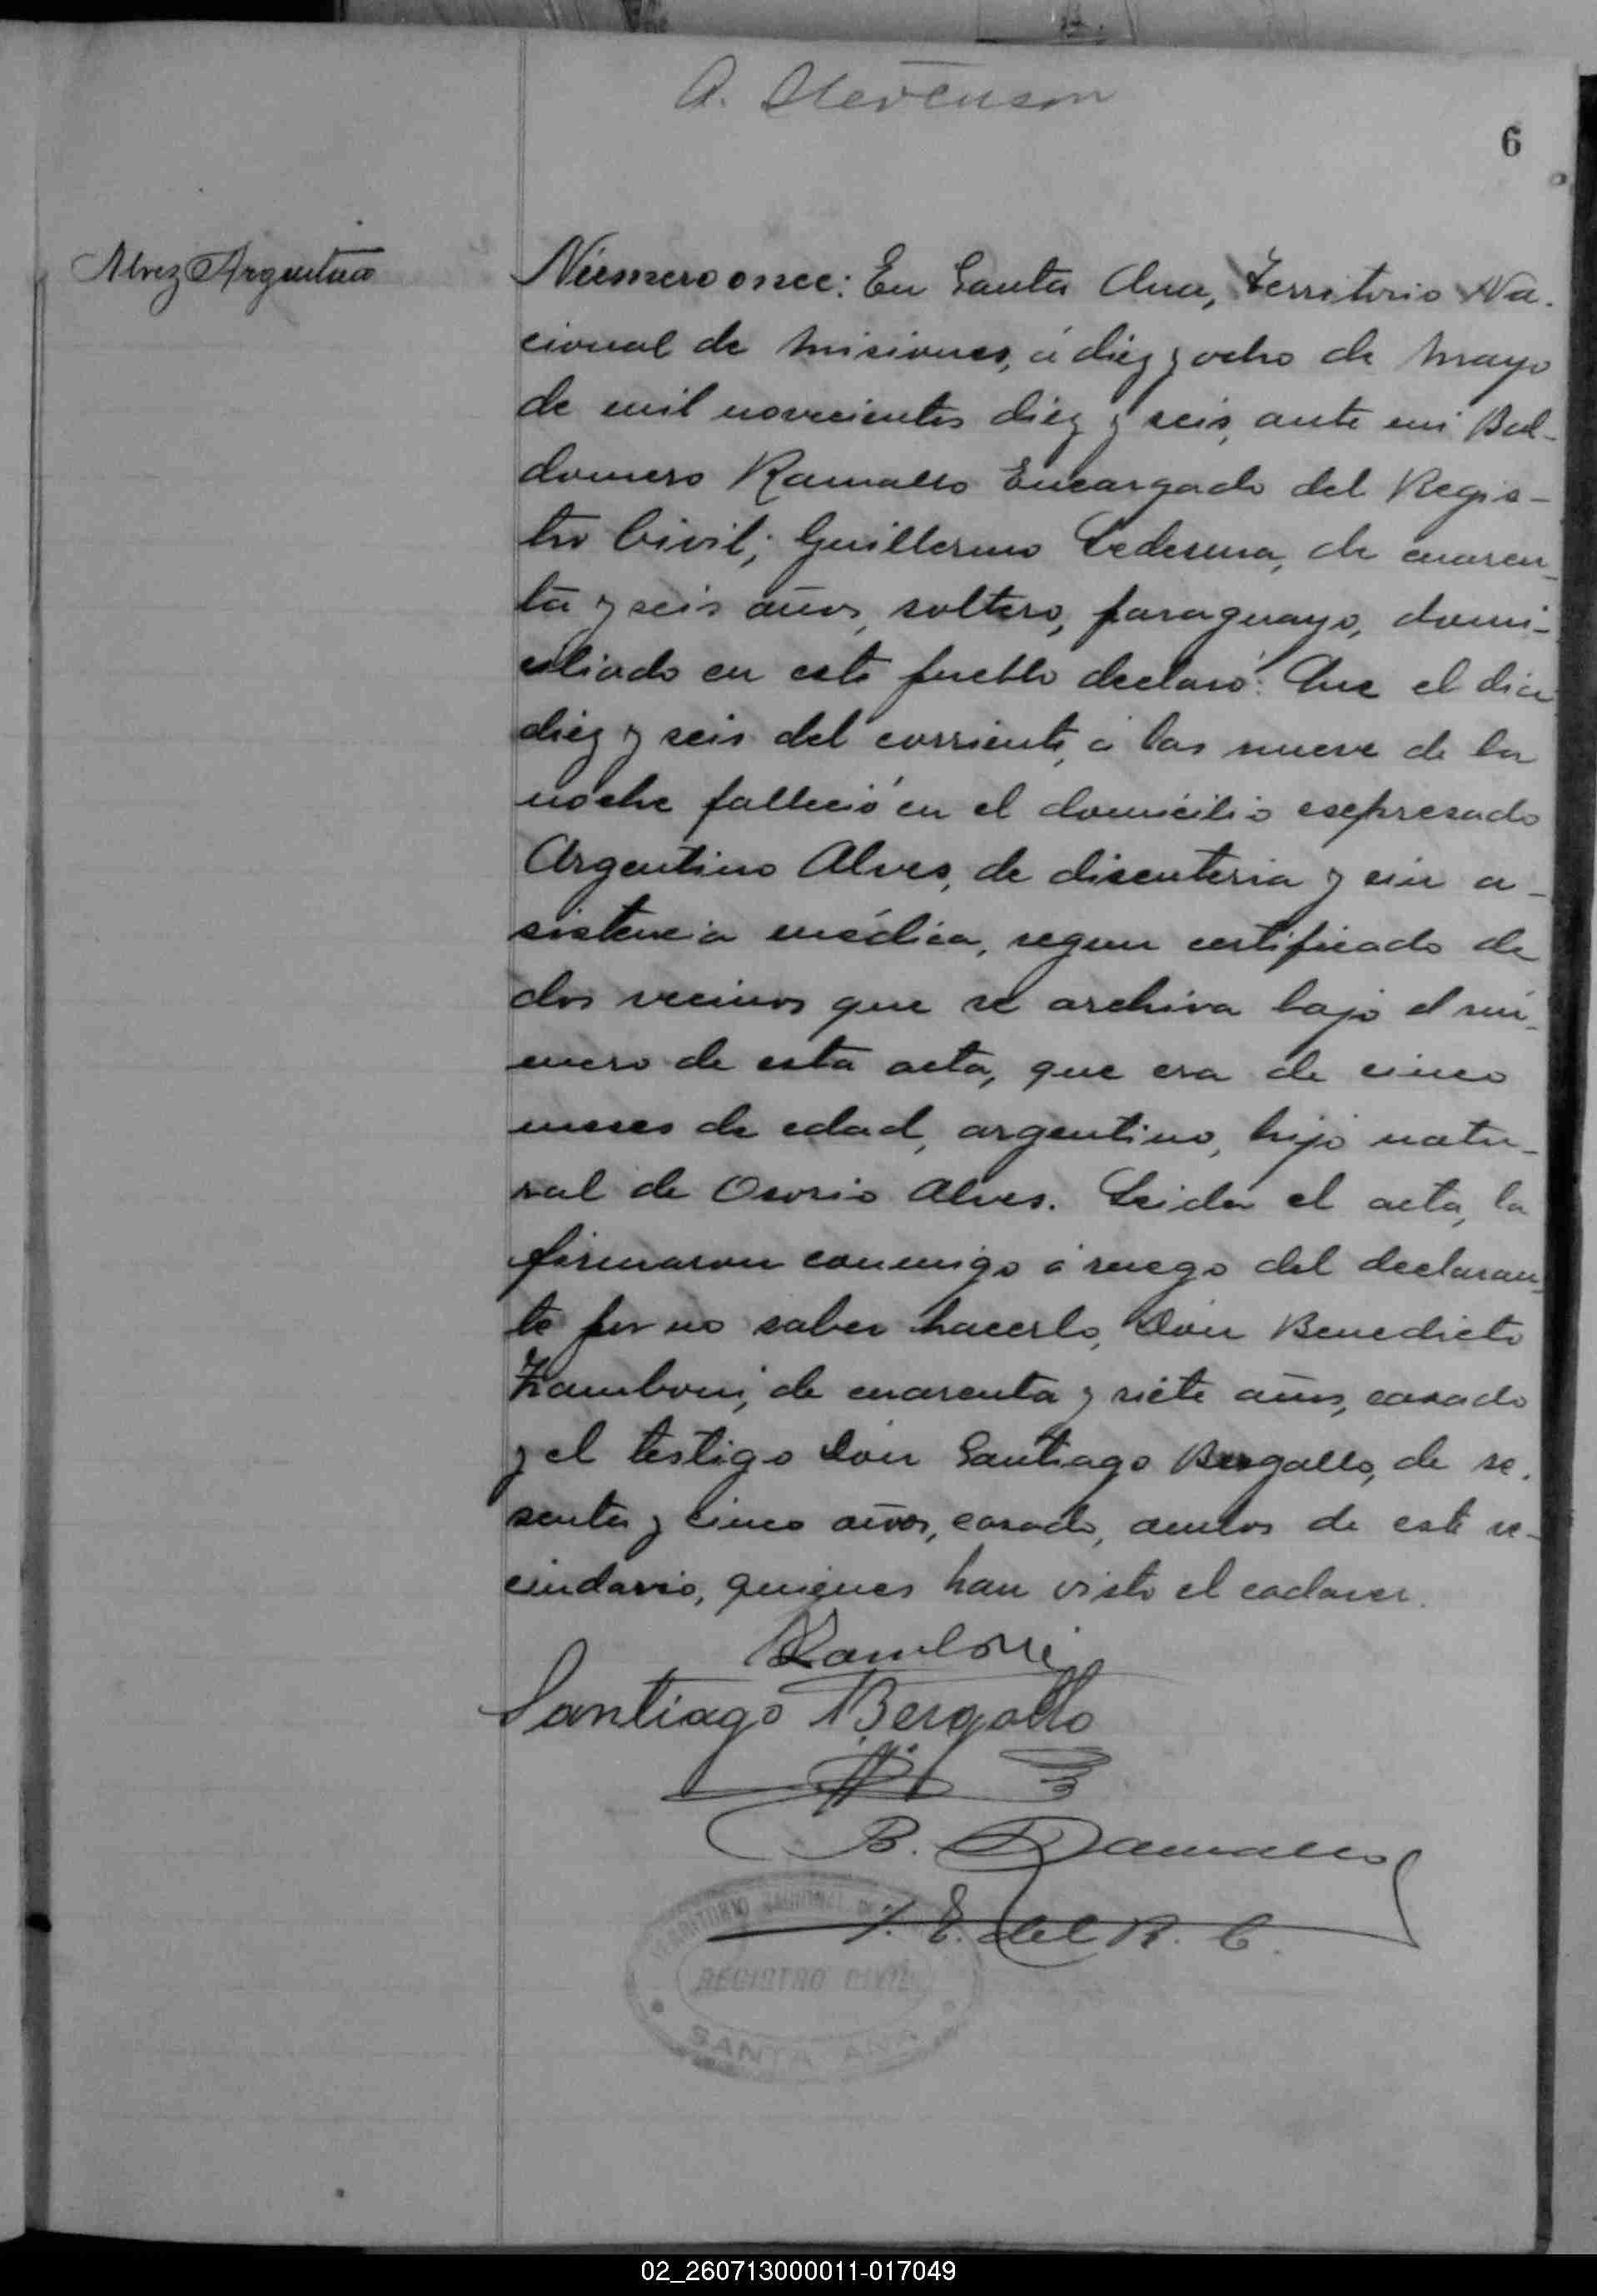 A. Stevenson
6
Alvez Argentino
Número once: En Santa Ana, Territorio Na-
cional de Misiones, á diez y ocho de Mayo
de mil novecientos diez y seis, ante mi Bal-
domero Ramallo Encargado del Regis-
tro Civil; Guillermo Ledesma, de cuaren-
ta y seis años, soltero, paraguayo, domi-
ciliado en este pueblo declaró: Que el dia
diez y seis del corriente, á las nueve de la
noche falleció en el domicilio esepresado
Argentino Alves, de disenteria y sin a-
sistencia médica, segun certificado de
dos vecinos que se archiva bajo el nú-
mero de esta acta, que era de cinco
meses de edad, argentino, hijo natu-
ral de Osorio Alves. Leida el acta, la
firmaron conmigo á ruego del declaran-
te por no saber hacerlo, Don Benedicto
Zamboni, de cuarenta y siete años, casado
y el testigo Don Santiago Bergallo, de se-
senta y cinco años, casado, ambos de este ve-
cindario, quienes han visto el cadaver.
Zamboni
Santiago Bergallo
B. Ramallo
E. del R. C.
TERRITORIO NACIONAL DE
REGISTRO CIVIL
SANTA ANA
02_260713000011-017049